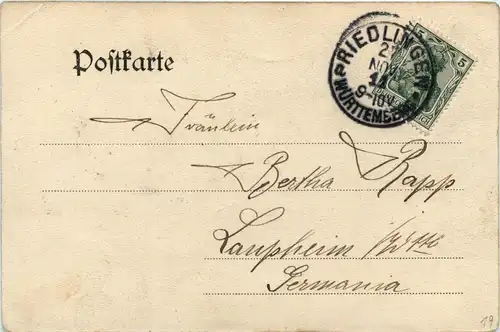 Postkarte
RIEDLINGEN
NOV
9-10V
WÜRTTEMBERG
5
5
Fräulein
Bertha Rapp
Laupheim
Germania
19